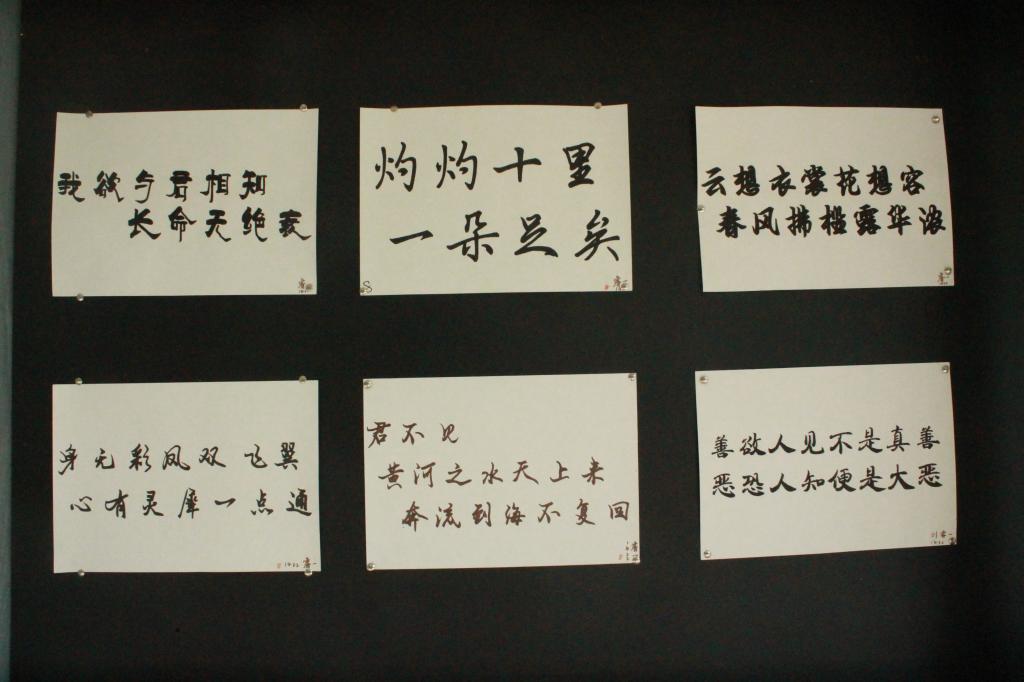 我欲与君相知
长命无绝衰
灼灼十里
一朵足矣
S
云想衣裳花想容
春风拂槛露华浓
身无彩凤双飞翼
心有灵犀一点通
君不见
黄河之水天上来
奔流到海不复回
善欲人见不是真善
恶恐人知便是大恶